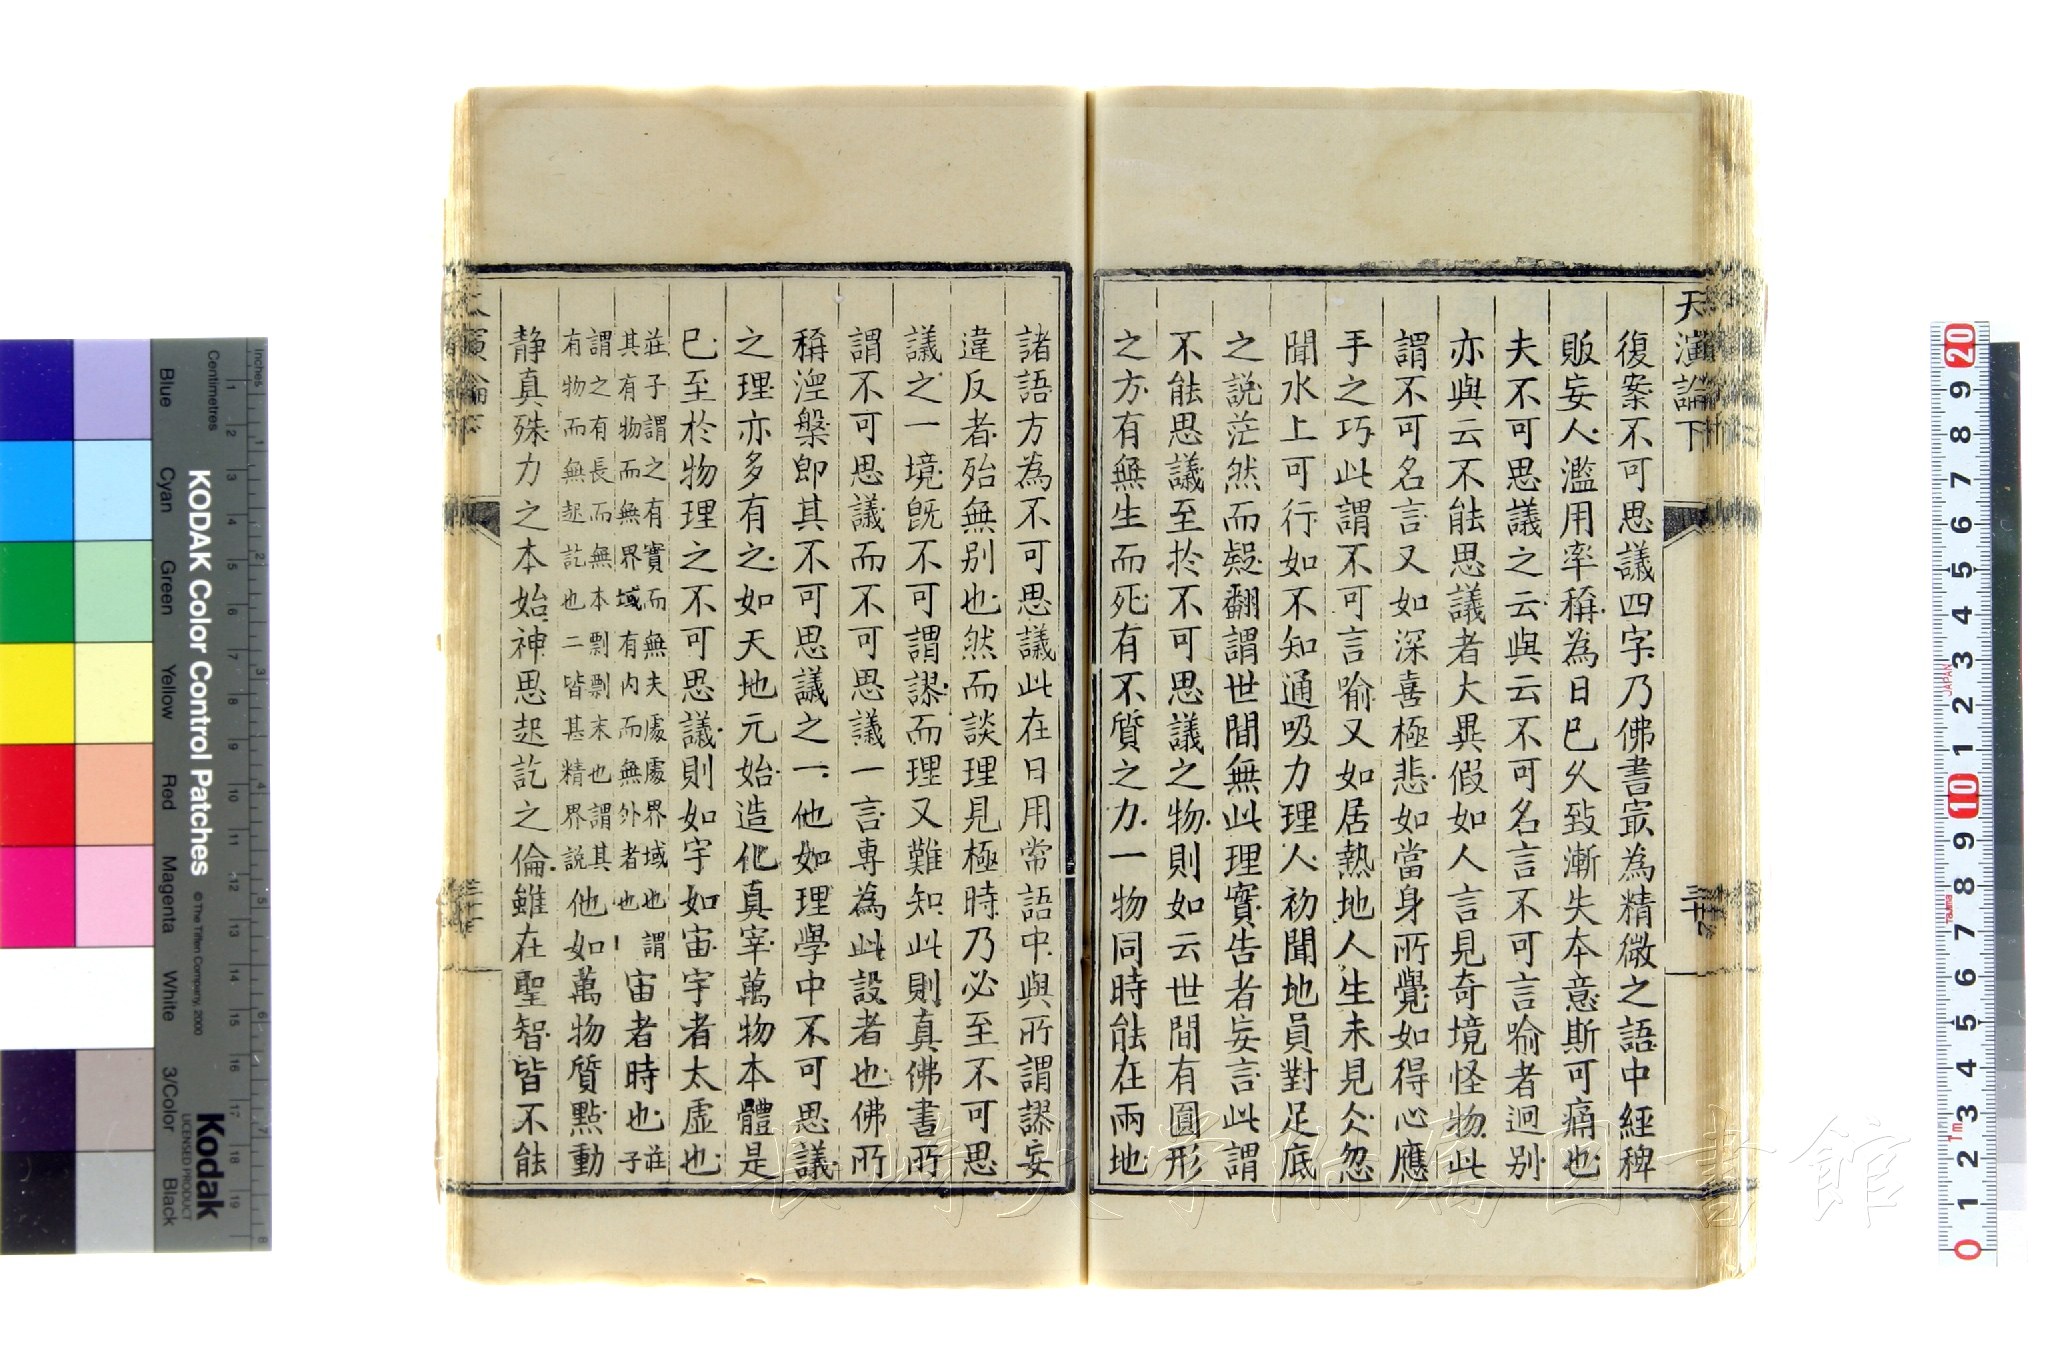 天演論下
三十
復案不可思議四字乃佛書㝡為精微之語中經稗
販妄人濫用率稱為日已久致漸失本意斯可痛也
夫不可思議之云與云不可名言不可言喻者迥别
亦與云不能思議者大異假如人言見奇境怪物此
謂不可名言又如深喜極悲如當身所覺如得心應
手之巧此謂不可言喻又如居熱地人生未見仌忽
聞水上可行如不知通吸力理人初聞地員對足底
之說茫然而疑翻謂世間無此理實告者妄言此謂
不能思議至於不可思議之物則如云世間有圓形
之方有無生而死有不質之力一物同時能在兩地
諸語方為不可思議此在日用常語中與所謂謬妄
違反者殆無别也然而談理見極時乃必至不可思
議之一境既不可謂謬而理又難知此則真佛書所
謂不可思議而不可思議一言專為此設者也佛所
稱涅槃即其不可思議之一他如理學中不可思議
之理亦多有之如天地元始造化真宰萬物本體是
已至於物理之不可思議則如宇如宙宇者太虛也
莊子謂之有實而無夫處處界域也謂
其有物而無界域有内而無外者也
宙者時也
莊子
謂之有長而無本剽剽末也謂其
有物而無起訖也二皆甚精界說
他如萬物質點動
静真殊力之本始神思起訖之倫雖在聖智皆不能
長崎大学附属図書館
KODAK Color Control Patches
© The Tiffen Company, 2000
Kodak
LICENSED PRODUCT
Inches
Centimetres
Blue
Cyan
Green
Yellow
Red
Magenta
White
3/Color
Black
JAPAN